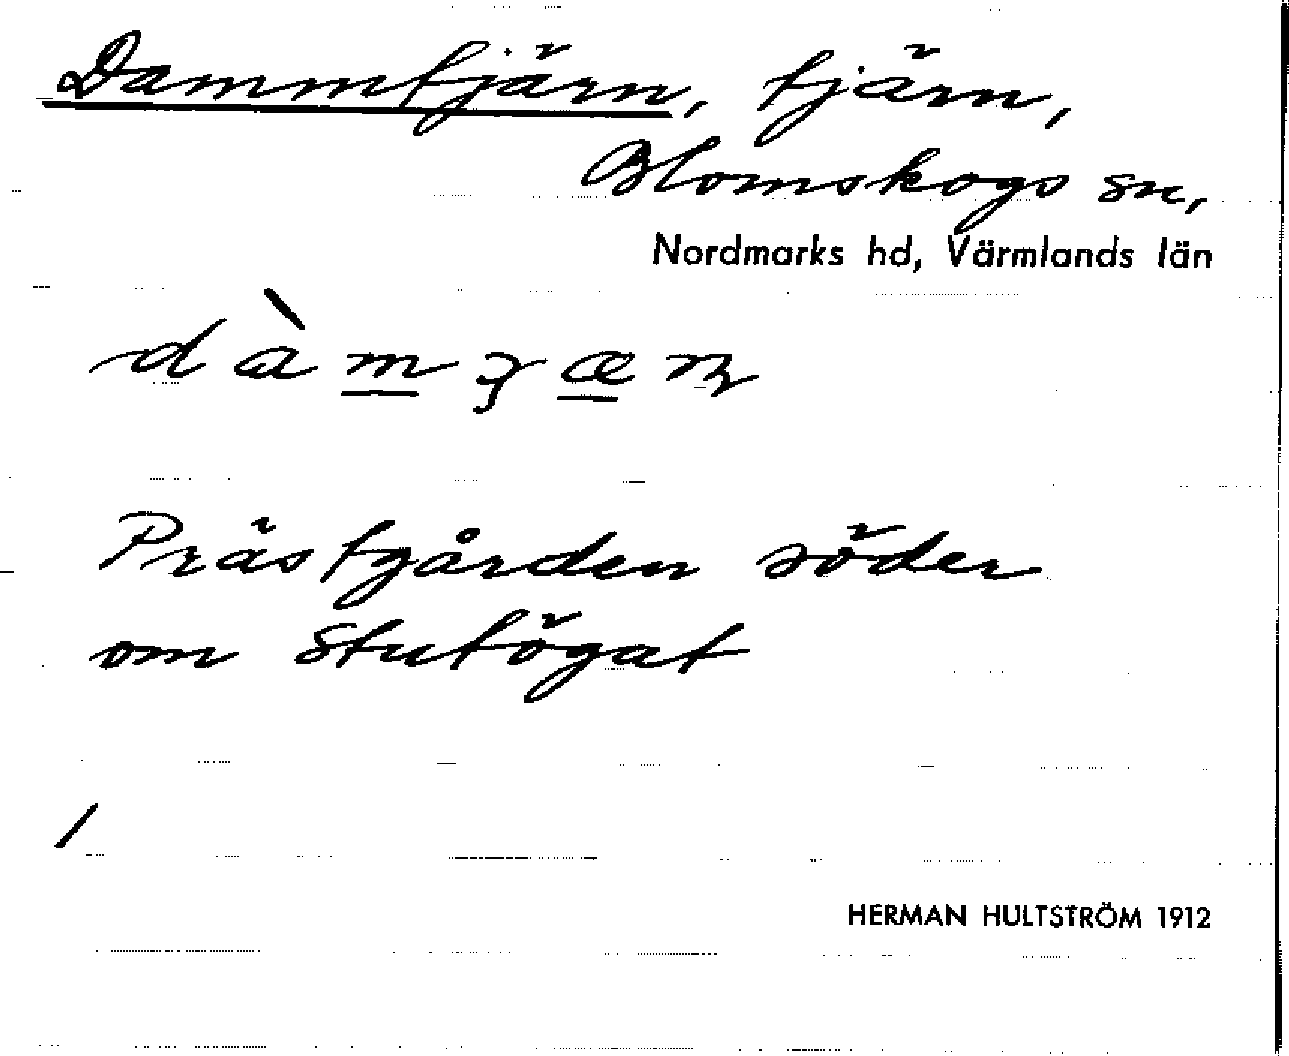 Dammtjärn, tjärn,
Blomskogs sn,
Nordmarks hd, Värmlands län
Prästgården söder
om Stutögat
/
HERMAN HULTSTRÖM 1912